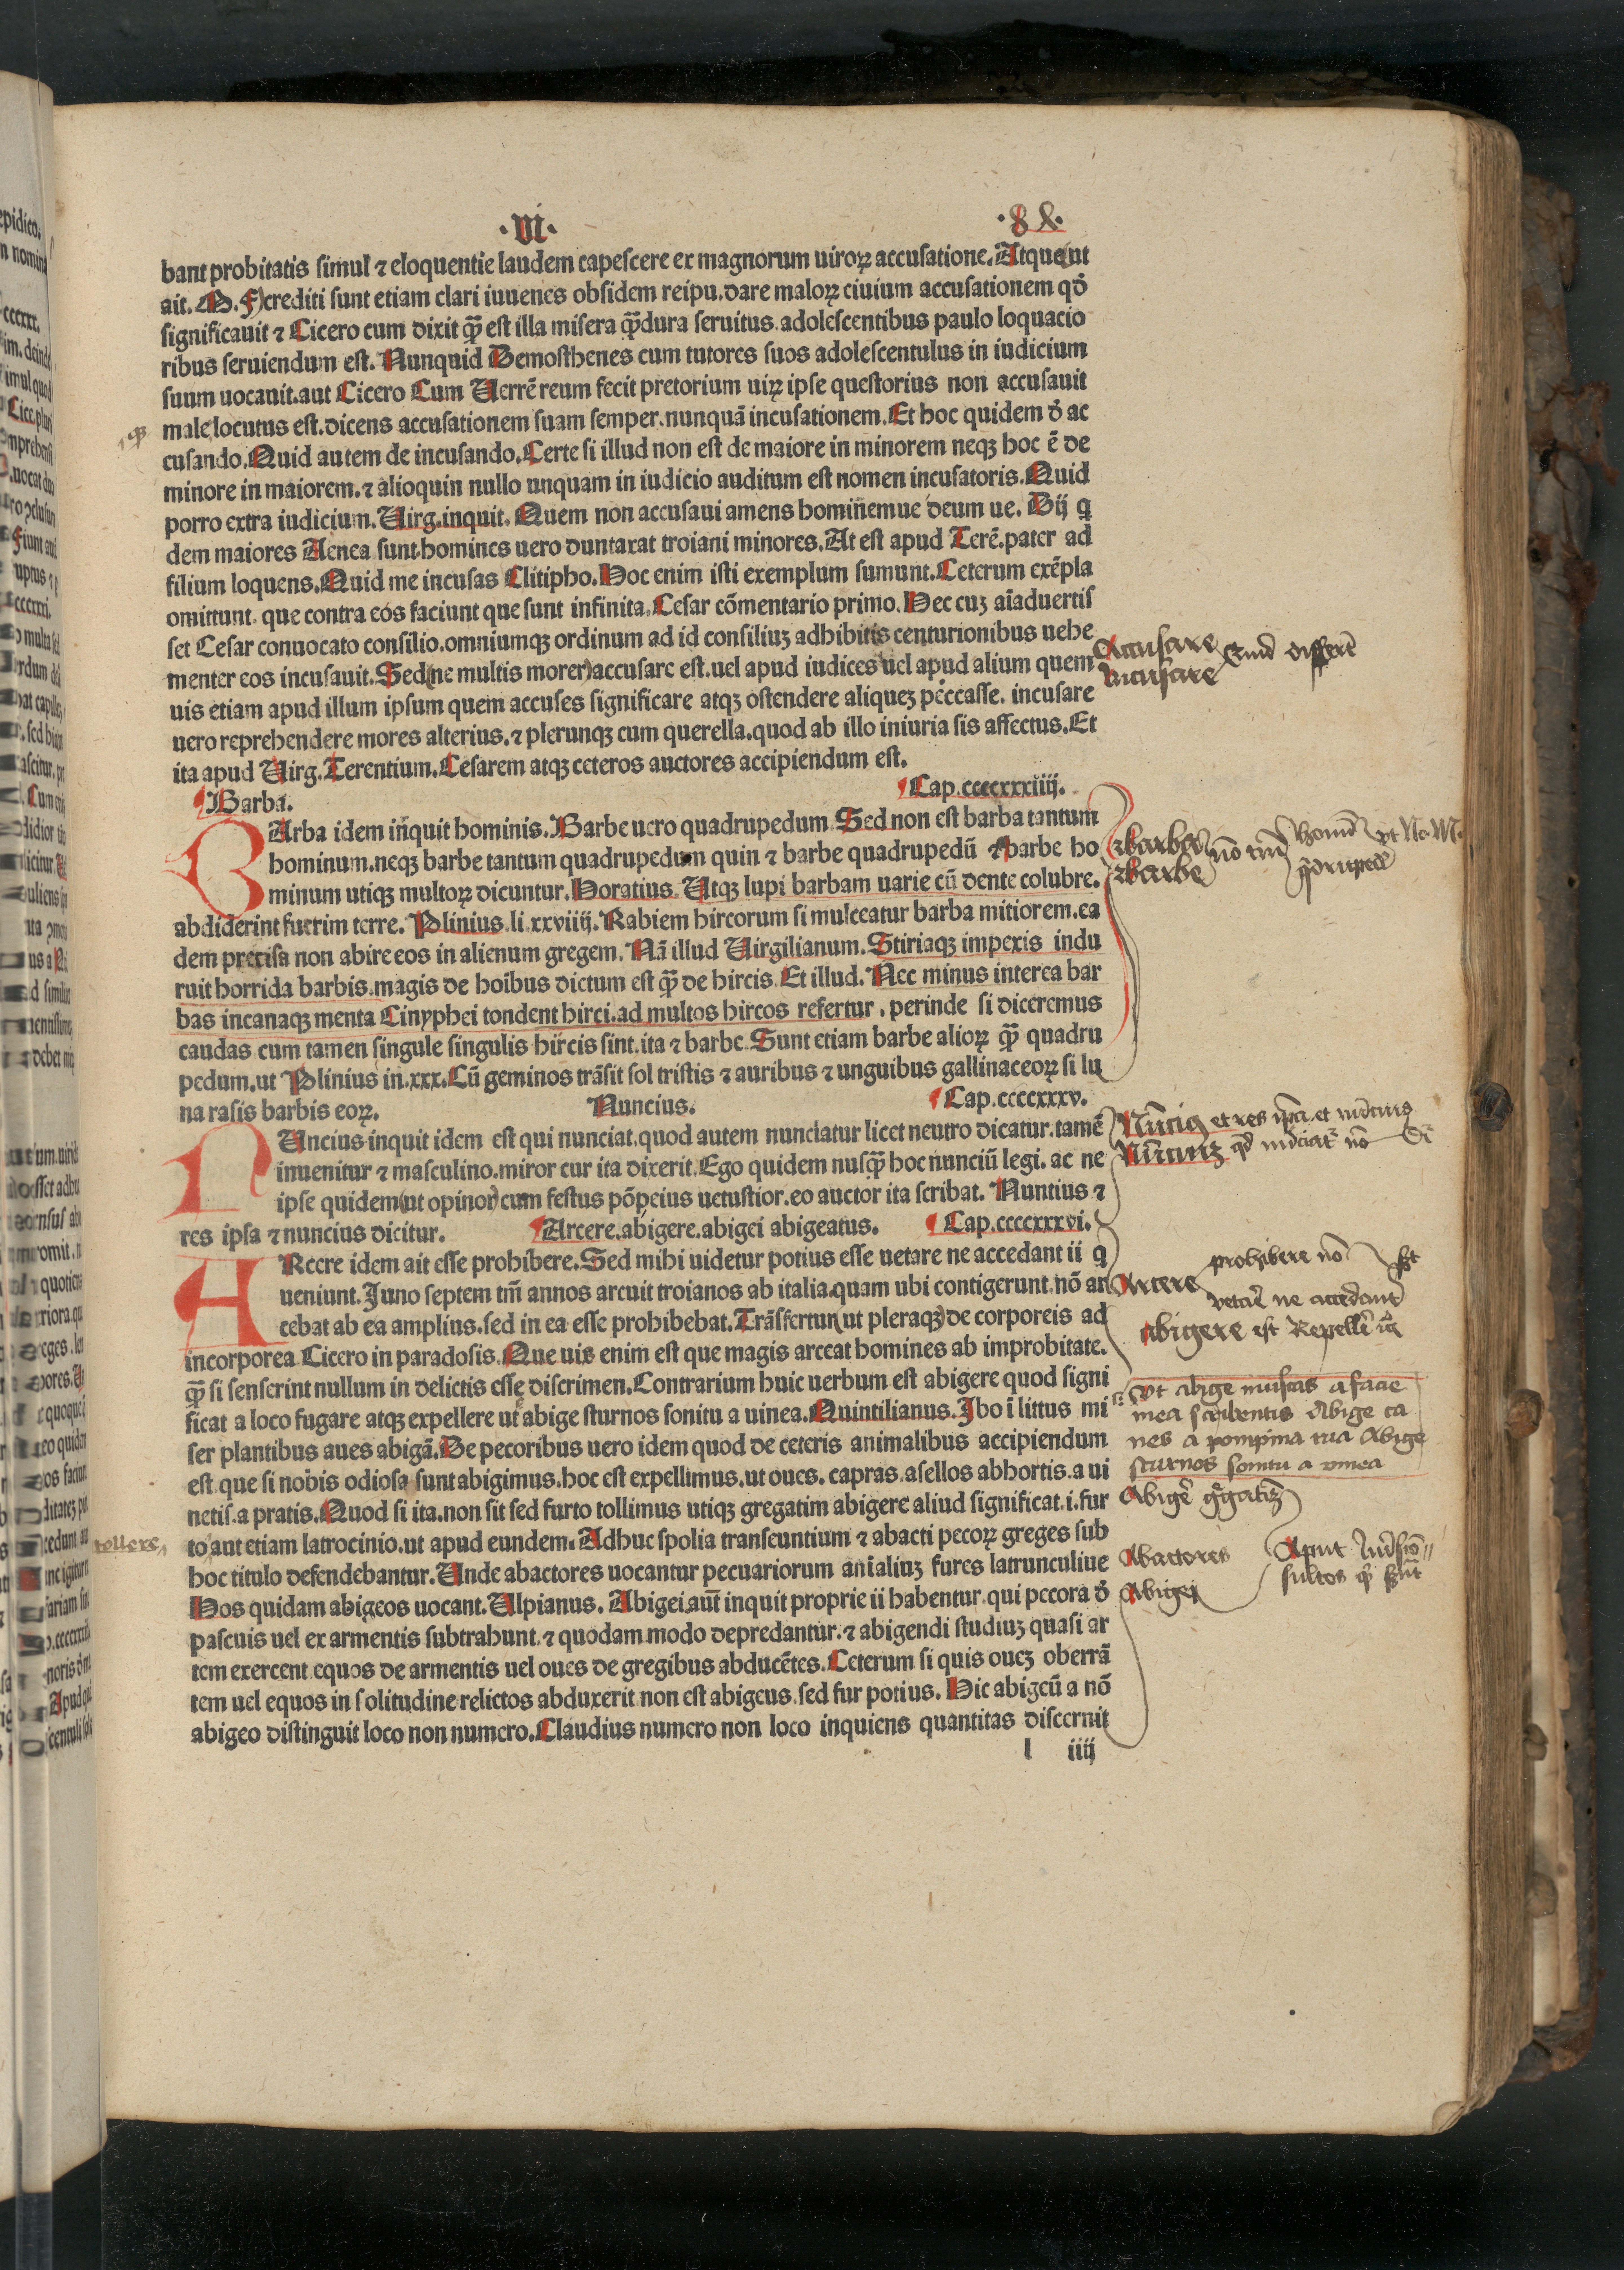 ·VI· ·8&·
bant probitatis simul ⁊ eloquentie laudem capescere ex magnorum uiroꝝ accusatione. Atque ut
ait. M. F)crediti sunt etiam clari iuuenes obsidem reipu. dare maloꝝ ciuium accusationem qđ
significauit ⁊ Cicero cum dixit ꝙ̃ est illa misera ꝙ̃dura seruitus. adolescentibus paulo loquacio
ribus seruiendum est. Nunquid Demosthenes cum tutores suos adolescentulus in iudicium
suum uocauit. aut Cicero Cum Uerrē reum fecit pretorium uiꝝ ipse questorius non accusauit
male locutus est. dicens accusationem suam semper. nunquā incusationem. Et hoc quidem đ ac
cusando. Quid autem de incusando. Certe si illud non est de maiore in minorem neqꝫ hoc ē de
minore in maiorem. ⁊ alioquin nullo unquam in iudicio auditum est nomen incusatoris. Quid
porro extra iudicium. Uirg. inquit. Quem non accusaui amens hominemue deum ue. Dij q
dem maiores Aenea sunt. homines uero duntaxat troiani minores. At est apud Terē. pater ad
filium loquens. Quid me incusas Clitipho. Hoc enim isti exemplum sumunt. Ceterum exēpla
omittunt. que contra eos faciunt que sunt infinita. Cesar cōmentario primo. Hec cuꝫ aīaduertis
set Cesar conuocato consilio. omniumqꝫ ordinum ad id consiliuꝫ adhibitis centurionibus uehe
menter eos incusauit. Sed(ne multis morer)accusare est. uel apud iudices uel apud alium quem
uis etiam apud illum ipsum quem accuses significare atqꝫ ostendere aliqueꝫ peccasse. incusare
uero reprehendere mores alterius. ⁊ plerunqꝫ cum querella. quod ab illo iniuria sis affectus. Et
ita apud Uirg. Terentium. Cesarem atqꝫ ceteros auctores accipiendum est.
Barba. Cap. ccccxxxiiij.
BArba idem inquit hominis. Barbe uero quadrupedum. Sed non est barba tantum
hominum. neqꝫ barbe tantum quadrupedum quin ⁊ barbe quadrupedū ⁊ barbe ho
minum utiqꝫ multoꝝ dicuntur. Horatius. Utqꝫ lupi barbam uarie cū dente colubre.
abdiderint furtim terre. Plinius. li. xxviiij. Rabiem hircorum si mulceatur barba mitiorem. ea
dem precisa non abire eos in alienum gregem. Nā illud Uirgilianum. Stiriaqꝫ impexis indu
ruit horrida barbis. magis de hoībus dictum est ꝙ̃ de hircis. Et illud. Nec minus interea bar
bas incanaqꝫ menta Cinyphei tondent hirci. ad multos hircos refertur, perinde si diceremus
caudas cum tamen singule singulis hircis sint. ita ⁊ barbe. Sunt etiam barbe alioꝝ ꝙ̃ quadru
pedum. ut Plinius in. xxx. Cū geminos trāsit sol tristis ⁊ auribus ⁊ unguibus gallinaceoꝝ si lu
na rasis barbis eoꝝ. Nuncius. Cap. ccccxxxv.
NUncius inquit idem est qui nunciat. quod autem nunciatur licet neutro dicatur. tamē
inuenitur ⁊ masculino. miror cur ita dixerit. Ego quidem nusꝙ̃ hoc nunciū legi. ac ne
ipse quidem(ut opinor)cum festus pōpeius uetustior. eo auctor ita scribat. Nuntius ⁊
res ipsa ⁊ nuncius dicitur. Arcere. abigere. abigei abigeatus. Cap. ccccxxxvi.
ARcere idem ait esse prohibere. Sed mihi uidetur potius esse uetare ne accedant ii q
ueniunt. Juno septem tm̄ annos arcuit troianos ab italia. quam ubi contigerunt. nō ar
cebat ab ea amplius. sed in ea esse prohibebat. Trāsfertur(ut pleraqꝫ)de corporeis ad
incorporea Cicero in paradosis. Que uis enim est que magis arceat homines ab improbitate.
ꝙ̃ si senserint nullum in delictis esse discrimen. Contrarium huic uerbum est abigere quod signi
ficat a loco fugare atqꝫ expellere ut abige sturnos sonitu a uinea. Quintilianus. Ibo ī littus mi
ser plantibus aues abigā. De pecoribus uero idem quod de ceteris animalibus accipiendum
est. que si nobis odiosa sunt abigimus. hoc est expellimus. ut oues. capras. asellos abhortis. a ui
netis. a pratis. Quod si ita. non sit sed furto tollimus utiqꝫ gregatim abigere aliud significat. i. fur
to aut etiam latrocinio. ut apud eundem. Adhuc spolia transeuntium ⁊ abacti pecoꝝ greges sub
hoc titulo defendebantur. Unde abactores uocantur pecuariorum anīaliuꝫ fures latrunculiue
Hos quidam abigeos uocant. Ulpianus. Abigei aūt inquit proprie ii habentur. qui pecora đ
pascuis uel ex armentis subtrahunt. ⁊ quodam modo depredantur. ⁊ abigendi studiuꝫ quasi ar
tem exercent equos de armentis uel oues de gregibus abducētes. Ceterum si quis oueꝫ oberrā
tem uel equos in solitudine relictos abduxerit non est abigeus. sed fur potius. Hic abigeū a nō
abigeo distinguit loco non numero. Claudius numero non loco inquiens quantitas discernit
l iiij
Accusare
Incusare Quid differēt
Barba
Barbe nō tm̄
Nūcius et res ip̄a et nūcius
Nūciuꝫ qd nūciat nō
Arcere prohibere nō
vetare ne accedant
abigere est Repellē
Vt abige muscas a facie
mea scribentis Abige ca
nes a pompina tua Abige
sturnos sonitu a vinea
Abigē gregatiꝫ
Abactores
Abigei
tollere